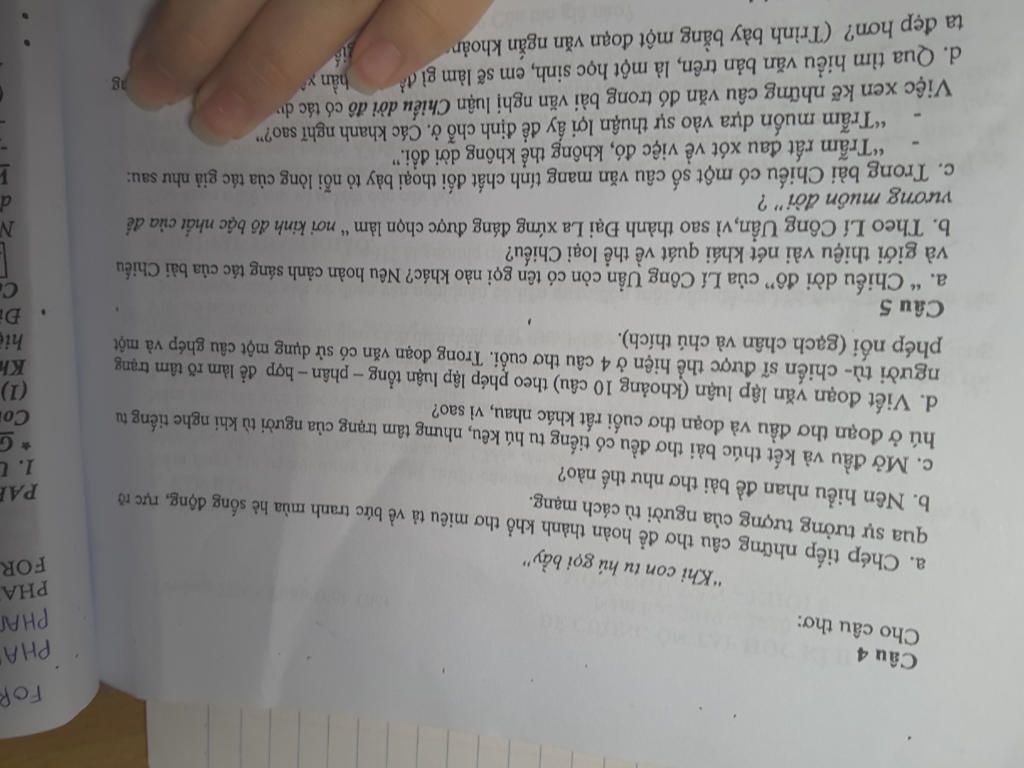 Câu 4
Cho câu thơ:
"Khi con tu hú gọi bầy"
a. Chép tiếp những câu thơ để hoàn thành khổ thơ miêu tả về bức tranh mùa hè sống động, rực rỡ
qua sự tưởng tượng của người tù cách mạng.
b. Nên hiểu nhan đề bài thơ như thế nào?
c. Mở đầu và kết thúc bài thơ đều có tiếng tu hú kêu, nhưng tâm trạng của người tù khi nghe tiếng tu
hú ở đoạn thơ đầu và đoạn thơ cuối rất khác nhau, vì sao?
d. Viết đoạn văn lập luận (khoảng 10 câu) theo phép lập luận tổng – phân – hợp để làm rõ tâm trạng
người tù- chiến sĩ được thể hiện ở 4 câu thơ cuối. Trong đoạn văn có sử dụng một câu ghép và một
phép nối (gạch chân và chú thích).
Câu 5
a. “ Chiếu dời đô” của Lí Công Uẩn còn có tên gọi nào khác? Nêu hoàn cảnh sáng tác của bài Chiếu
và giới thiệu vài nét khái quát về thể loại Chiếu?
b. Theo Lí Công Uẩn,vì sao thành Đại La xứng đáng được chọn làm “ nơi kinh đô bậc nhất của đế
vương muôn đời” ?
c. Trong bài Chiếu có một số câu văn mang tính chất đối thoại bày tỏ nỗi lòng của tác giả như sau:
- “Trẫm rất đau xót về việc đó, không thể không dời đổi.”
- “Trẫm muốn dựa vào sự thuận lợi ấy để định chỗ ở. Các khanh nghĩ sao?”
Việc xen kẽ những câu văn đó trong bài văn nghị luận Chiếu dời đô có tác dụ
d. Qua tìm hiểu văn bản trên, là một học sinh, em sẽ làm gì để
ta đẹp hơn? (Trình bày bằng một đoạn văn ngắn khoảng
FOR
PHA
PHA
PHA
FOR
PAR
1. U
* G
Con
(1)
Kh
hiệ
Đi
Cấ
N